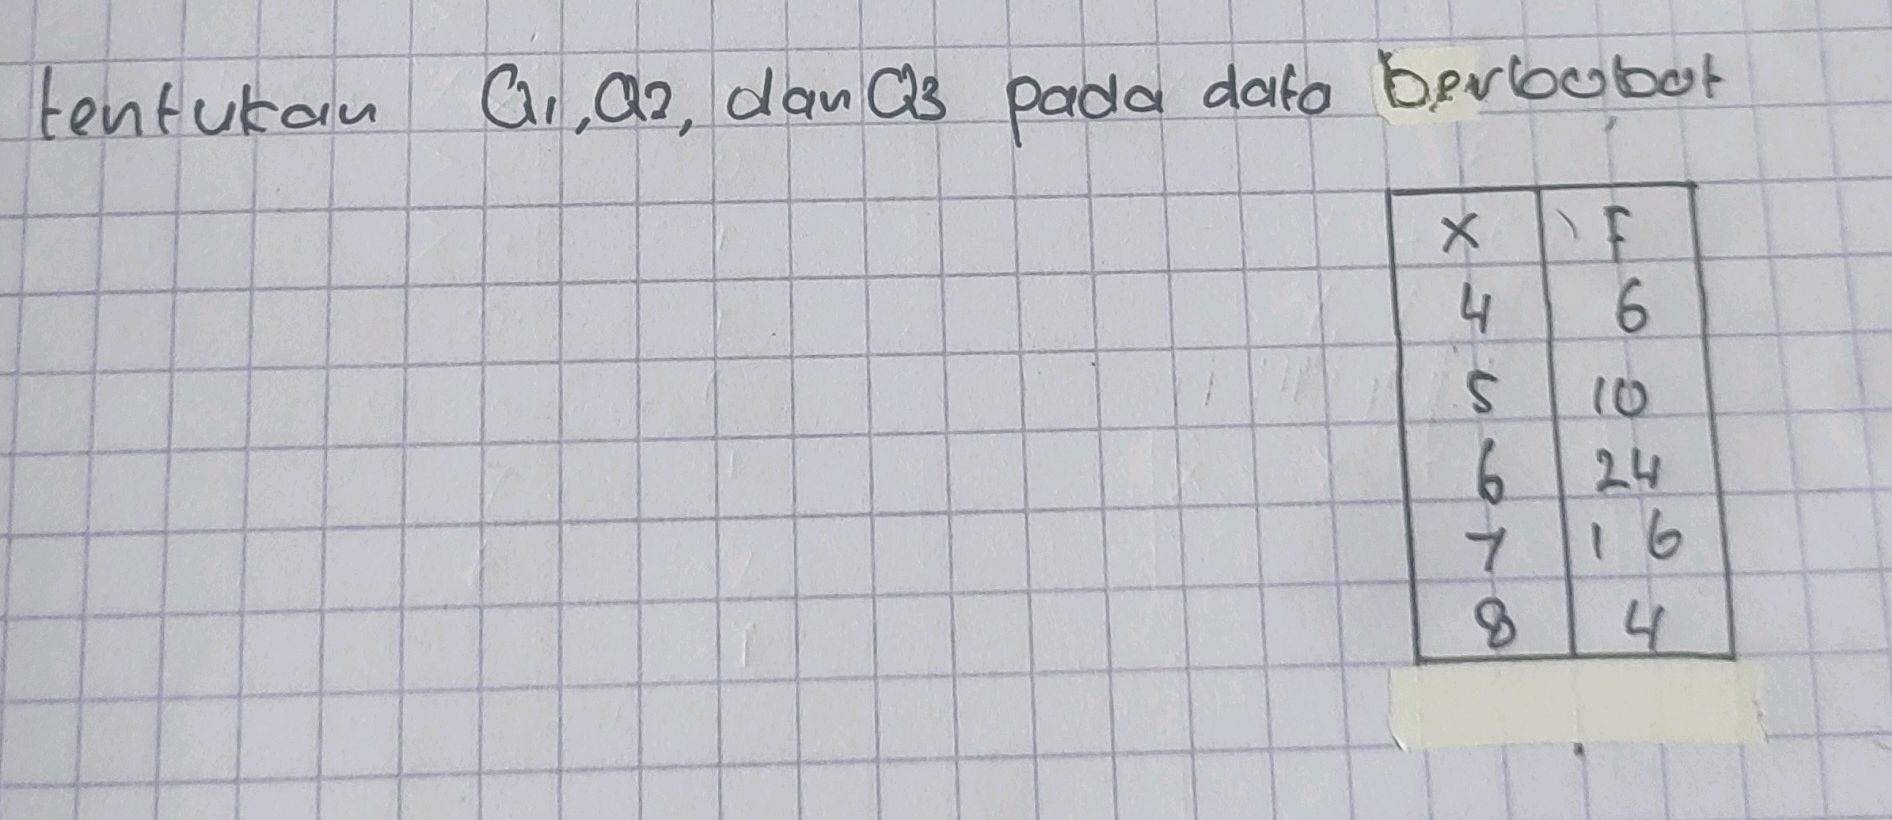 tentukan Q1, Q2, dan Q3 pada data berbobot
X F
4 6
5 10
6 24
7 16
8 4